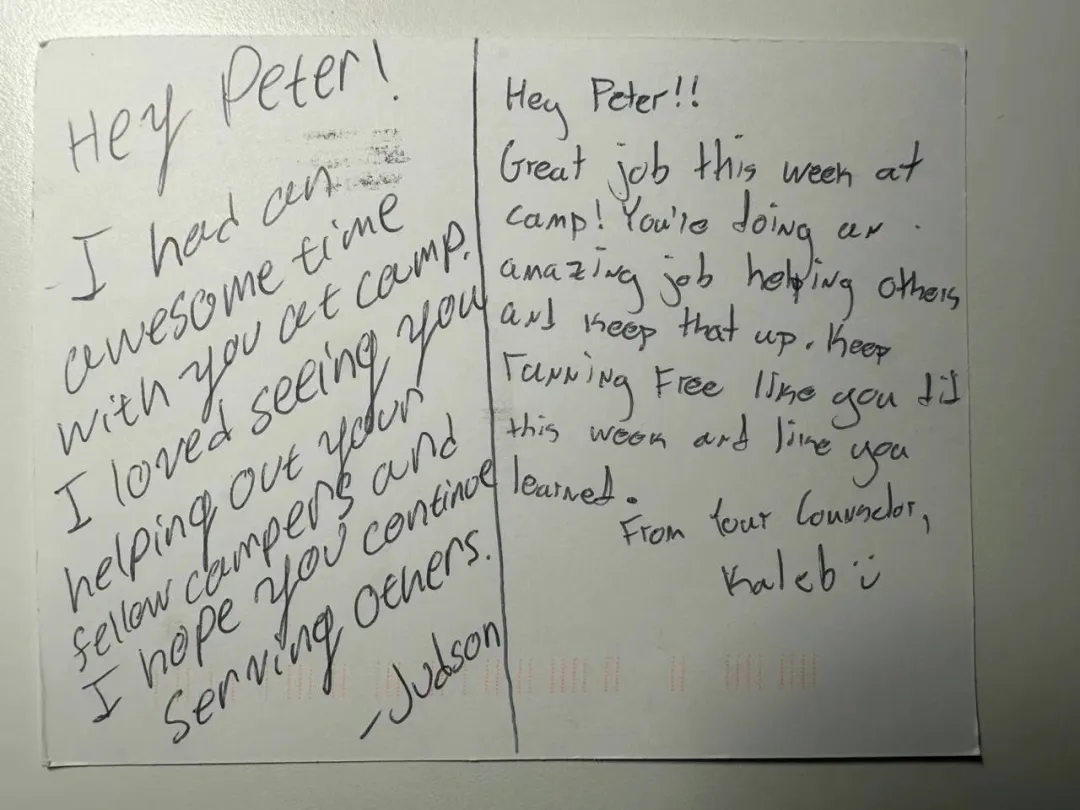 Hey Peter!
I had an
awesome time
with you at camp.
I loved seeing you
helping out your
fellow campers and
I hope you continue
serving others.
-Judson
Hey Peter!!
Great job this week at
camp! You're doing an
amazing job helping others
and keep that up. Keep
running Free like you did
this week and like you
learned.
From Your Counselor,
Kaleb :)